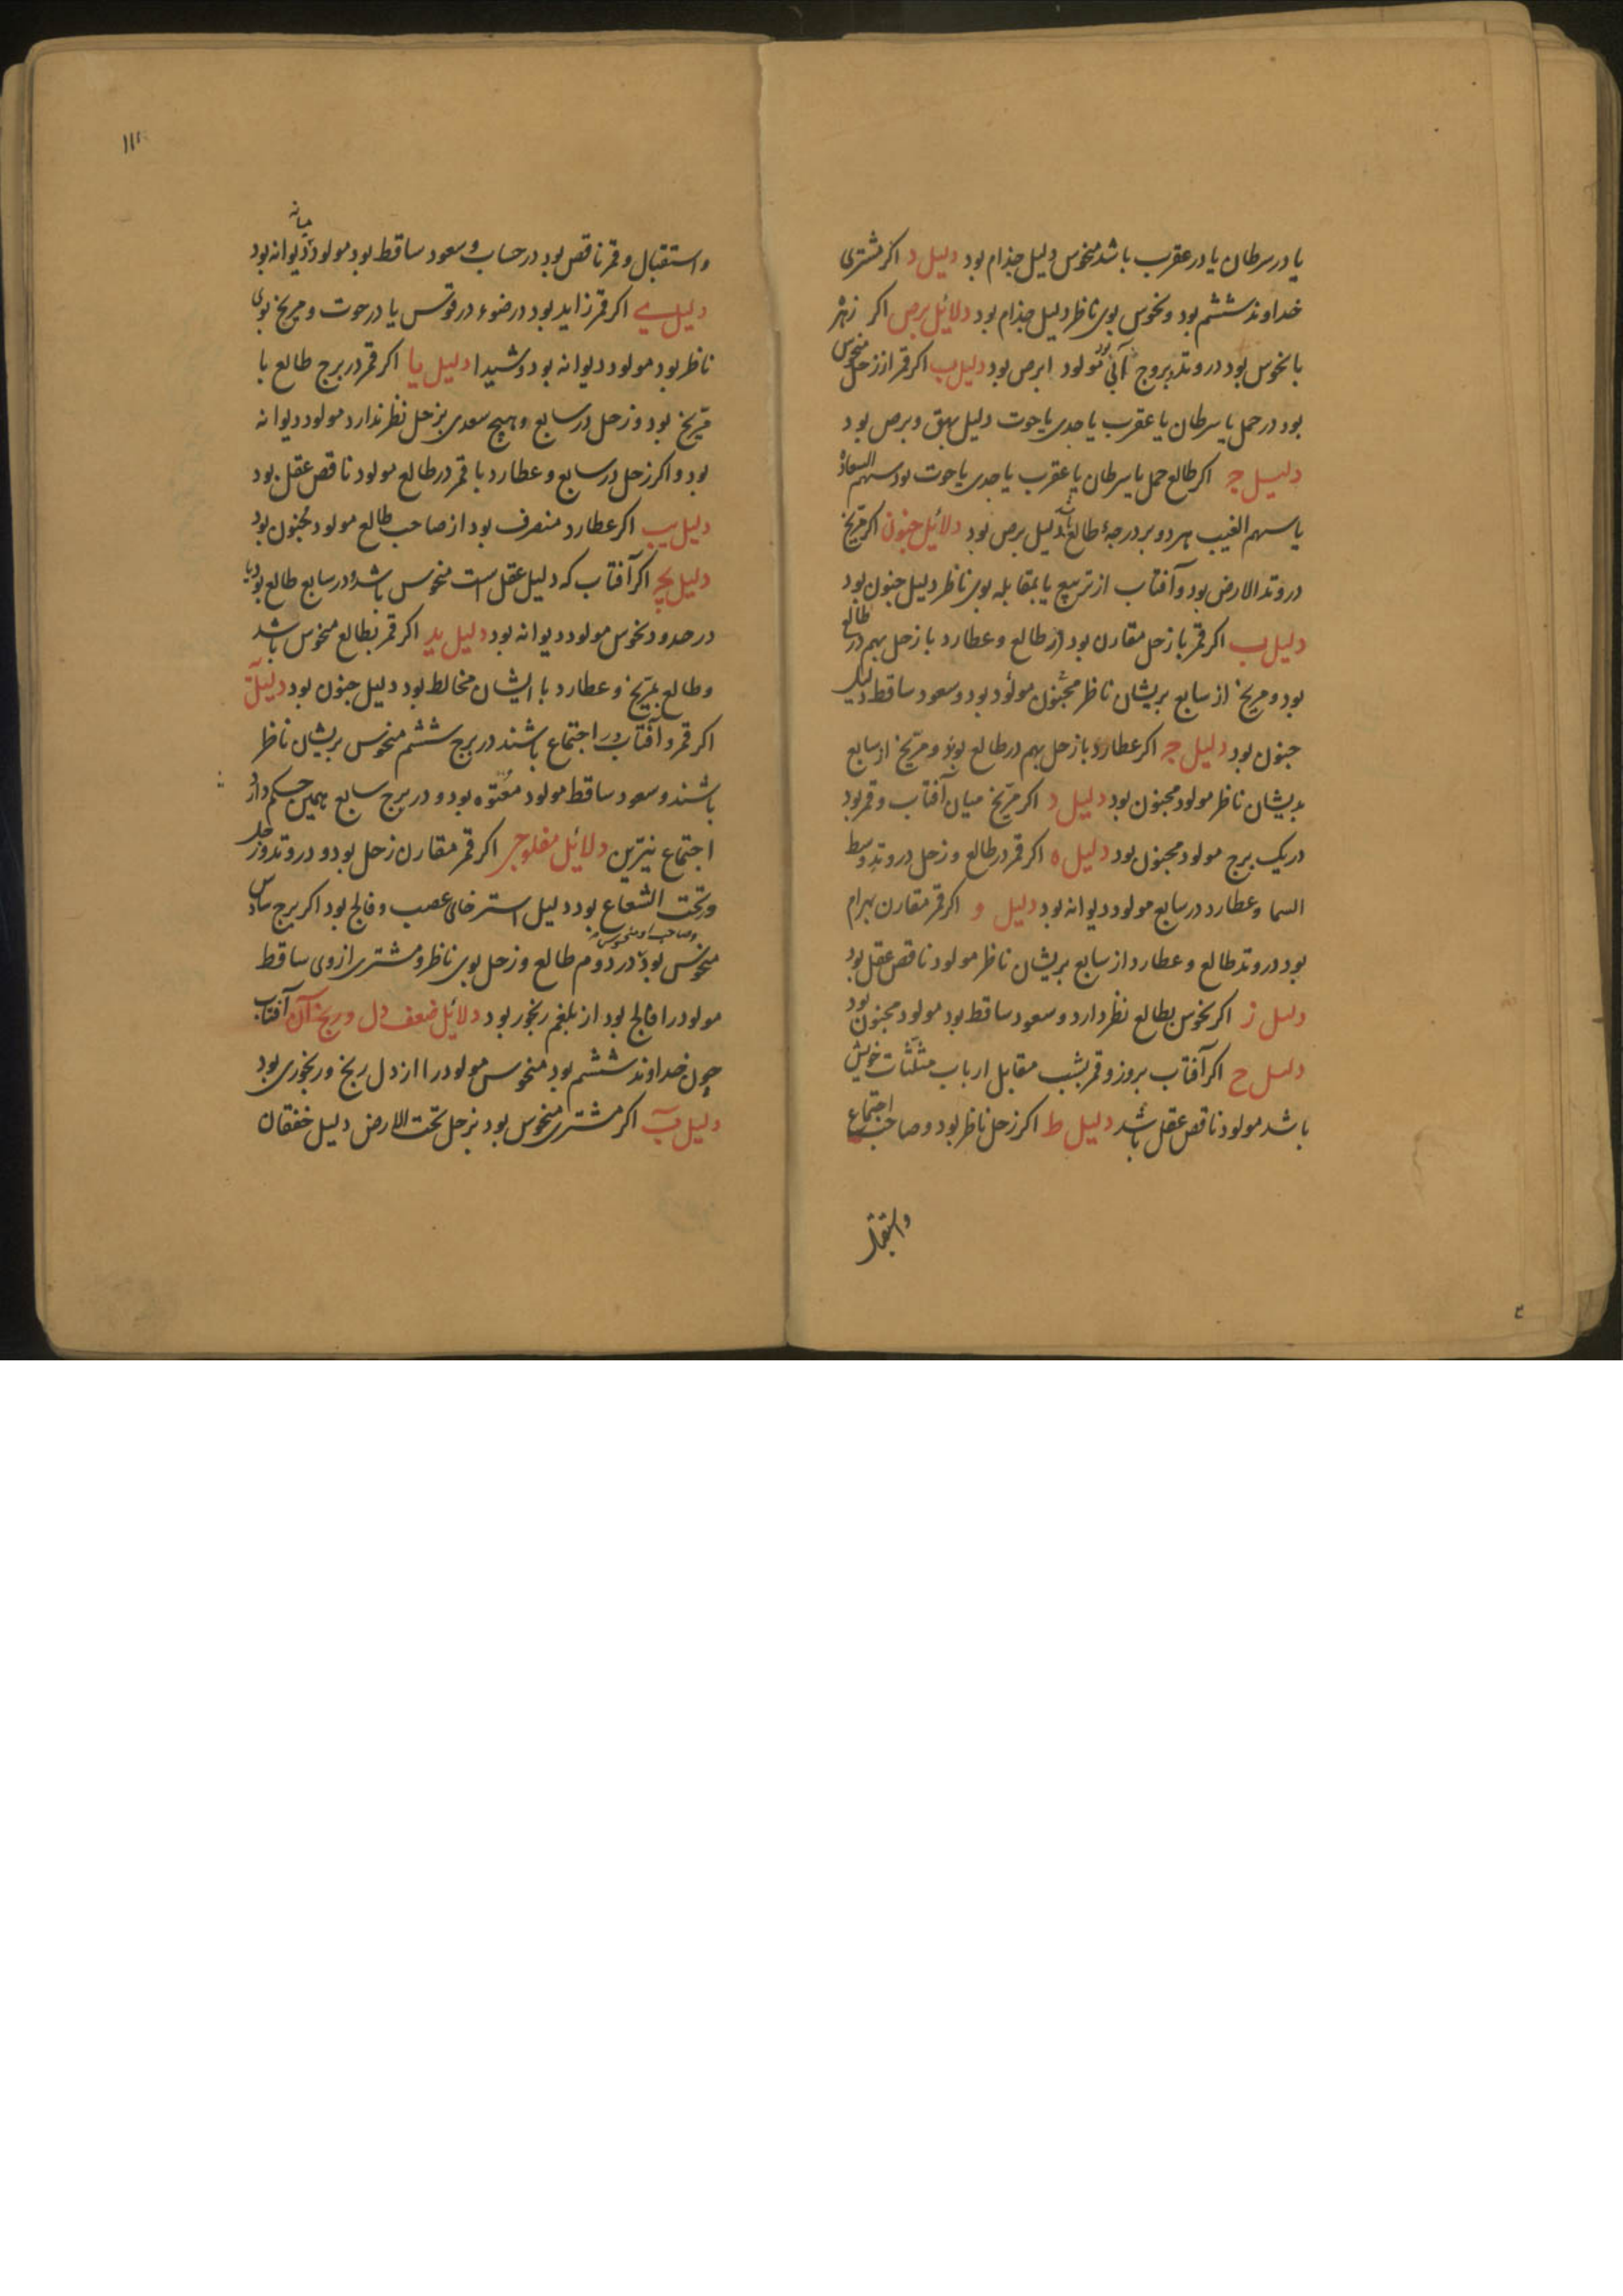 یا در سرطان یا در عقرب باشد منحوس دلیل جذام بود دلیل د اکر مشتری
خداوند ششم بود و نحوس بوی ناظر دلیل جذام بود دلائل برص اکر زهره
با نحوس بود در وتد بروج آبی بود مولود ابرص بود دلیل ب اکر قمر از زحل منحوس
بود در حمل یا سرطان یا عقرب یا جدی یا حوت دلیل بهق و برص بود
دلیل ج اکر طالع حمل یا سرطان یا عقرب یا جدی یا حوت بود سهم السعاده
یا سهم الغیب هر دو بر درجهٔ طالع باشد دلیل برص بود دلائل جنون اکر مریخ
در وتد الارض بود و آفتاب از تربیع یا بمقابله بوی ناظر دلیل جنون بود
دلیل ب اکر قمر با زحل مقارن بود در طالع و عطارد با زحل بهم در طالع
بود و مریخ از سابع بریشان ناظر مجنون مولود بود و سعود ساقط دلیل
جنون بود دلیل ج اکر عطارد با زحل بهم در طالع بود و مریخ از سابع
بدیشان ناظر مولود مجنون بود دلیل د اکر مریخ میان آفتاب و قمر بود
در یک برج مولود مجنون بود دلیل ه اکر قمر در طالع و زحل در وتد وسط
السما و عطارد در سابع مولود دیوانه بود دلیل و اکر قمر مقارن بهرام
بود در وتد طالع و عطارد از سابع بریشان ناظر مولود ناقص عقل بود
دلیل ز اکر نحوس بطالع نظر دارد و سعود ساقط بود مولود مجنون بود
دلیل ح اکر آفتاب بروز و قمر بشب مقابل ارباب مثلثات خویش
باشد مولود ناقص عقل باشد دلیل ط اکر زحل ناظر بود و صاحب اجتماع
واستقبال
۱۱۲
واستقبال و قمر ناقص بود در حساب و سعود ساقط بود مولود دیوانه بود
دلیل ی اکر قمر زاید بود در ضوء در قوس یا در حوت و مریخ بوی
ناظر بود مولود دیوانه بود و شیدا دلیل یا اکر قمر در برج طالع با
مریخ بود و زحل در سابع و هیچ سعدی بزحل نظر ندارد مولود دیوانه
بود و اکر زحل در سابع و عطارد با قمر در طالع مولود ناقص عقل بود
دلیل یب اکر عطارد منصرف بود از صاحب طالع مولود مجنون بود
دلیل یج اکر آفتاب که دلیل عقل است منحوس باشد و در سابع طالع بود یا
در حدود نحوس مولود دیوانه بود دلیل ید اکر قمر بطالع منحوس باشد
و طالع بمریخ و عطارد با ایشان مخالط بود دلیل جنون بود دلیل
اکر قمر و آفتاب در اجتماع باشند در برج ششم منحوس بریشان ناظر
باشند و سعود ساقط مولود معتوه بود و در برج سابع همین حکم دارد
اجتماع نیرین دلائل مفلوجی اکر قمر مقارن زحل بود و در وتد و زحل
در تحت الشعاع بود دلیل استرخای عصب و فالج بود اکر برج سادس
وصاحب او منحوس
منحوس بود در دوم طالع و زحل بوی ناظر و مشتری از وی ساقط
مولود را فالج بود از بلغم رنجور بود دلائل ضعف دل و رنج آن آفتاب
چون خداوند ششم بود منحوس مولود را از دل رنج و رنجوری بود
دلیل ب اکر مشتری منحوس بود بزحل تحت الارض دلیل خفقان